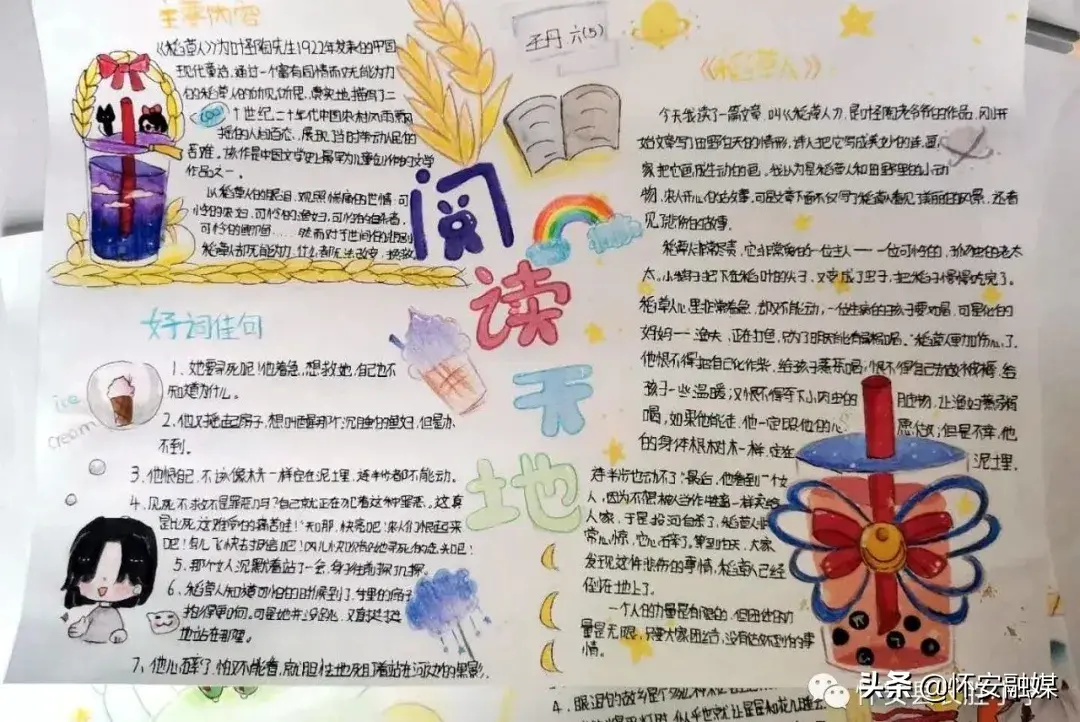 主要内容
《稻草人》为叶圣陶先生1922年发表的中国
现代童话，通过一个富有同情而又无能为力
的稻草人的所见所思，真实地描写了二
十世纪二十年代中国农村风雨飘
摇的人间百态，展现了当时劳动人民的
苦难。该作是中国文学史上最早为儿童创作的文学
作品之一。
从稻草人的眼泪，观照悱恻的世情，可
怜的农妇，可怜的渔妇，可怜的自杀者，
可怜的鲫鱼……然而对于世间的悲剧
稻草人却无能为力，什么都无法改变
好词佳句
ice
cream
1、她要寻死呢！他着急，想救她，自己也不
知道为什么。
2、他又摇起扇子，想叫醒那个沉睡的渔妇，但是办
不到。
3、他恨自己，不该像树木一样定在泥土里，连半步都不能动。
4、见死不救不是罪恶吗？自己就正在犯着这种罪恶。这真
是比死还难受的痛苦哇！天哪，快亮吧！农人们快起来
吧！鸟儿快飞去报信吧！风儿快吹散她寻死的念头吧！
5、那个女人沉默着站了一会，身子往前探了几探。
6、稻草人知道可怕的时候到了，手里的扇子
拍得更响。可是她并没跳，又直挺挺
地站在那里。
7、他心碎了，怕又不能看，就胆怯地死盯着站在河边的黑影。
阅
读
天
地
王丹 六(5)
《稻草人》
今天我读了一篇文章，叫《稻草人》，是叶圣陶老爷爷的作品，刚开
始文章写了田野白天的情形，诗人把它写成美妙的诗，画
家把它画成生动的画。我认为是稻草人和田野里的小动
物，农人开心的故事，可是文章下面不仅写了稻草人看见了美丽的风景，还看
见了悲伤的故事。
稻草人非常尽责，它非常爱的一位主人——一位可怜的，孤独的老太
太。小蛾子把下在稻叶的尖子，又变成了虫子，把稻子慢慢吃完了。
稻草人心里非常着急，却又不能动，一位生病的孩子要喝，可是他的
妈妈——渔夫，正在打鱼，只为了明天能有粥喝呢。稻草人更加伤心了，
他恨不得把自己化作柴，给孩子煮茶喝；恨不得自己为做被褥，给
孩子一些温暖；又恨不得夺下小肉虫的赃物，让渔妇煮粥
喝，如果他能走，他一定照他的心愿做；但是不幸，他
的身体跟树木一样，定在泥土里，
连半步也动不了。最后，他看到了一个女
人，因为不愿被人当作牲畜一样卖给
人家，于是投河自杀了，稻草人非
常心惊，它心石卒了，等到白天，大家
发现这件悲伤的事情，稻草人已经
倒在地上了。
一个人的力量是有限的，但团结的力
量是无限，只要大家团结，没有达不到的事
情。
头条 @怀安融媒